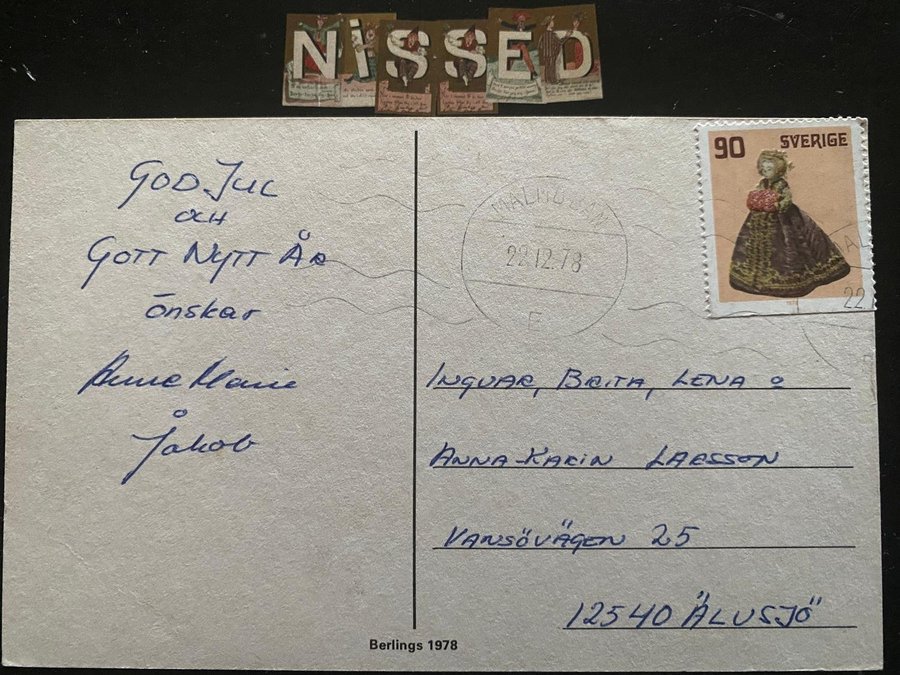 NiSSED
GOD JUL
och
GOTT NYTT ÅR
önskar
Anne Marie
o
Jakob
90 SVERIGE
MALMÖ BAN
22.12.78
E
MAL
22
INGVAR, BRITA, LENA o
ANNA-KARIN LARSSON
VANSÖVÄGEN 25
12540 ÄLVSJÖ
Berlings 1978